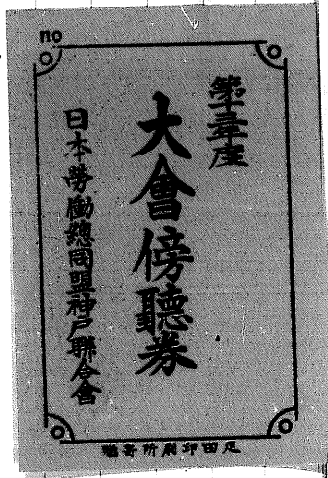 no
年度
大會傍聽券
日本勞働總同盟神戸聯合會
足田印刷所寄贈